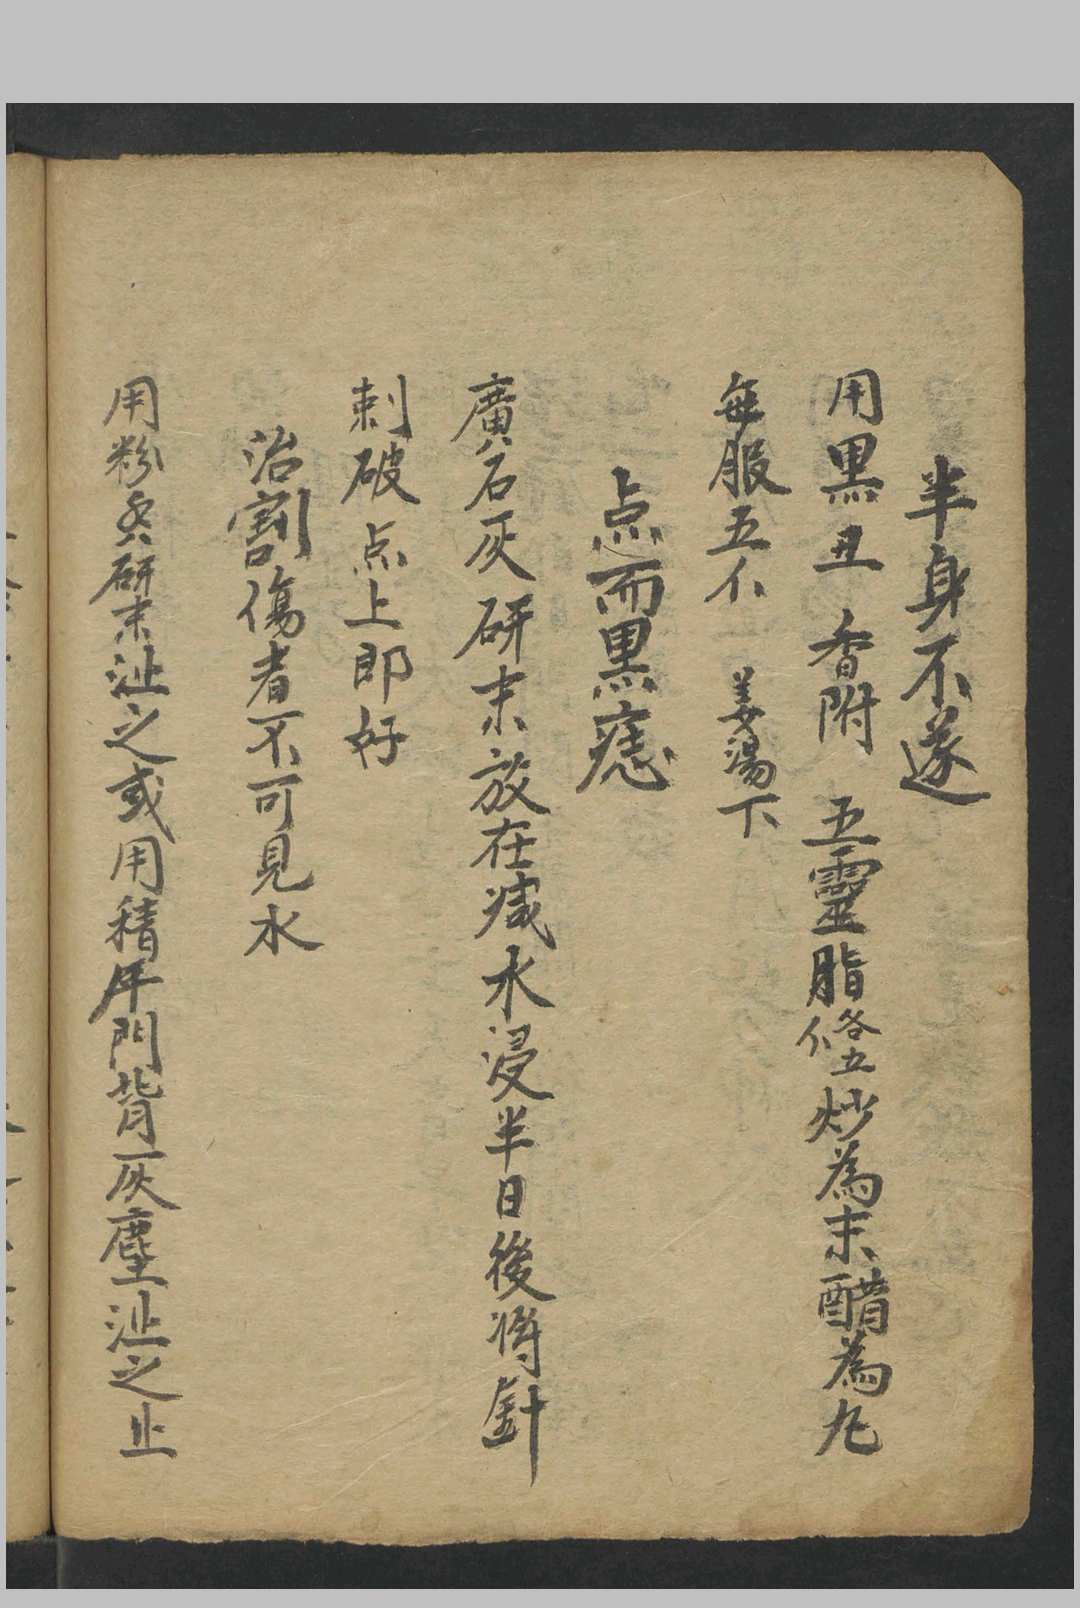 半身不遂
用黑丑 香附 五靈脂各五个炒為末醋為丸
每服五个 姜湯下
点面黑痣
廣石灰研末放在碱水浸半日後将針
刺破点上即好
治割傷者不可見水
用粉 研末沚之或用積年門背灰塵沚之止